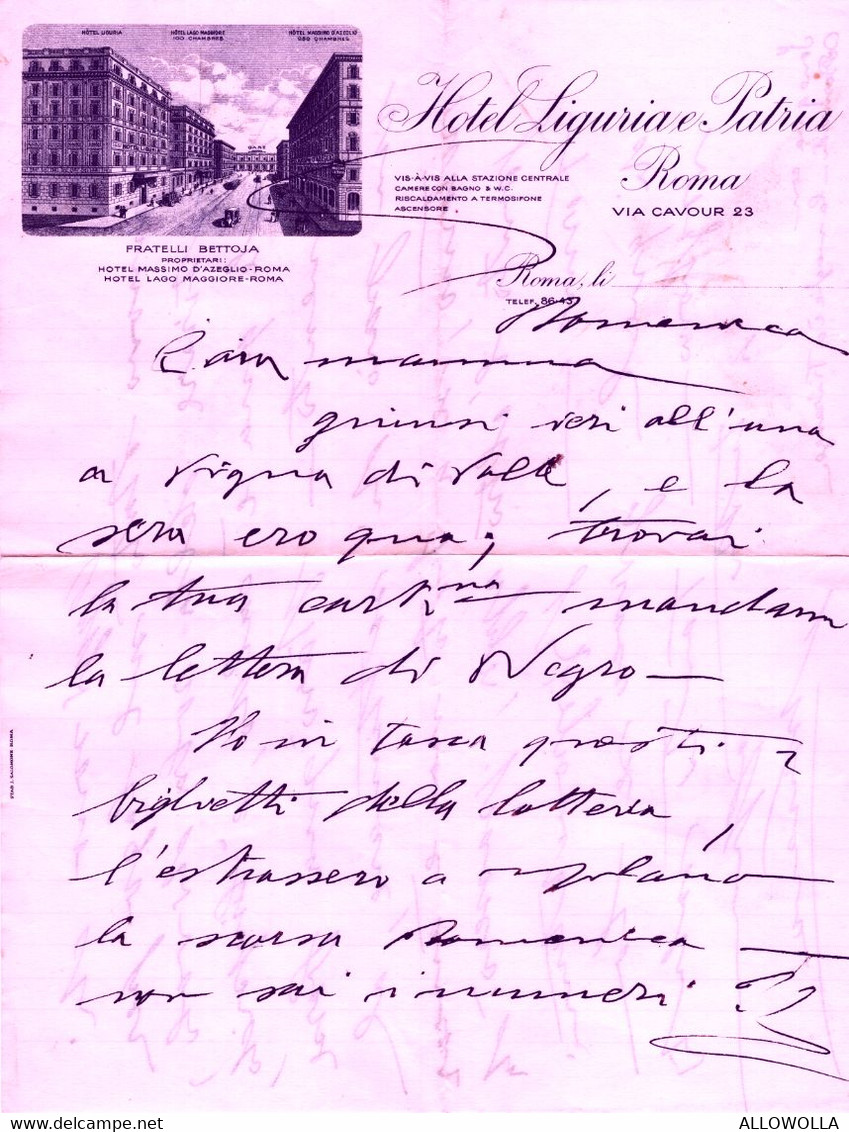 HÔTEL LIGURIA
HÔTEL LAGO MAGGIORE
100 CHAMBRES
HÔTEL MASSIMO D'AZEGLIO
250 CHAMBRES
GARE
Hotel Liguria e Patria
Roma
VIA CAVOUR 23
VIS-À-VIS ALLA STAZIONE CENTRALE
CAMERE CON BAGNO & W.C.
RISCALDAMENTO A TERMOSIFONE
ASCENSORE
FRATELLI BETTOJA
PROPRIETARI:
HOTEL MASSIMO D'AZEGLIO-ROMA
HOTEL LAGO MAGGIORE-ROMA
Roma, li
TELEF. 86-43
Domenica
Cara mamma
giunsi ieri all'una
a Vigna di Valle, e la
sera ero qua; trovai
la tua cartina mandami
la lettera di Negro —
Ho in tasca questi
biglietti della lotteria,
l'estrassero a Milano
la scorsa Domenica —
non sai i numeri?
STAB. J. SALOMONE ROMA
https://www.delcampe.net
ALLOWOLLA